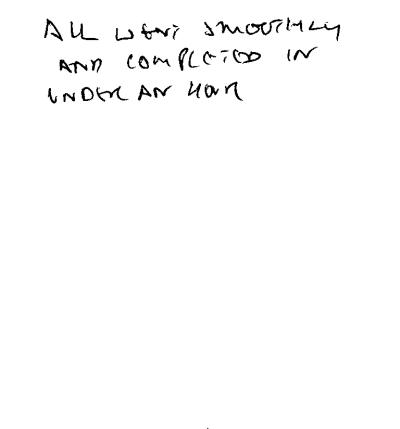 ALL WENT SMOOTHLY
AND COMPLETED IN
UNDER AN HOUR